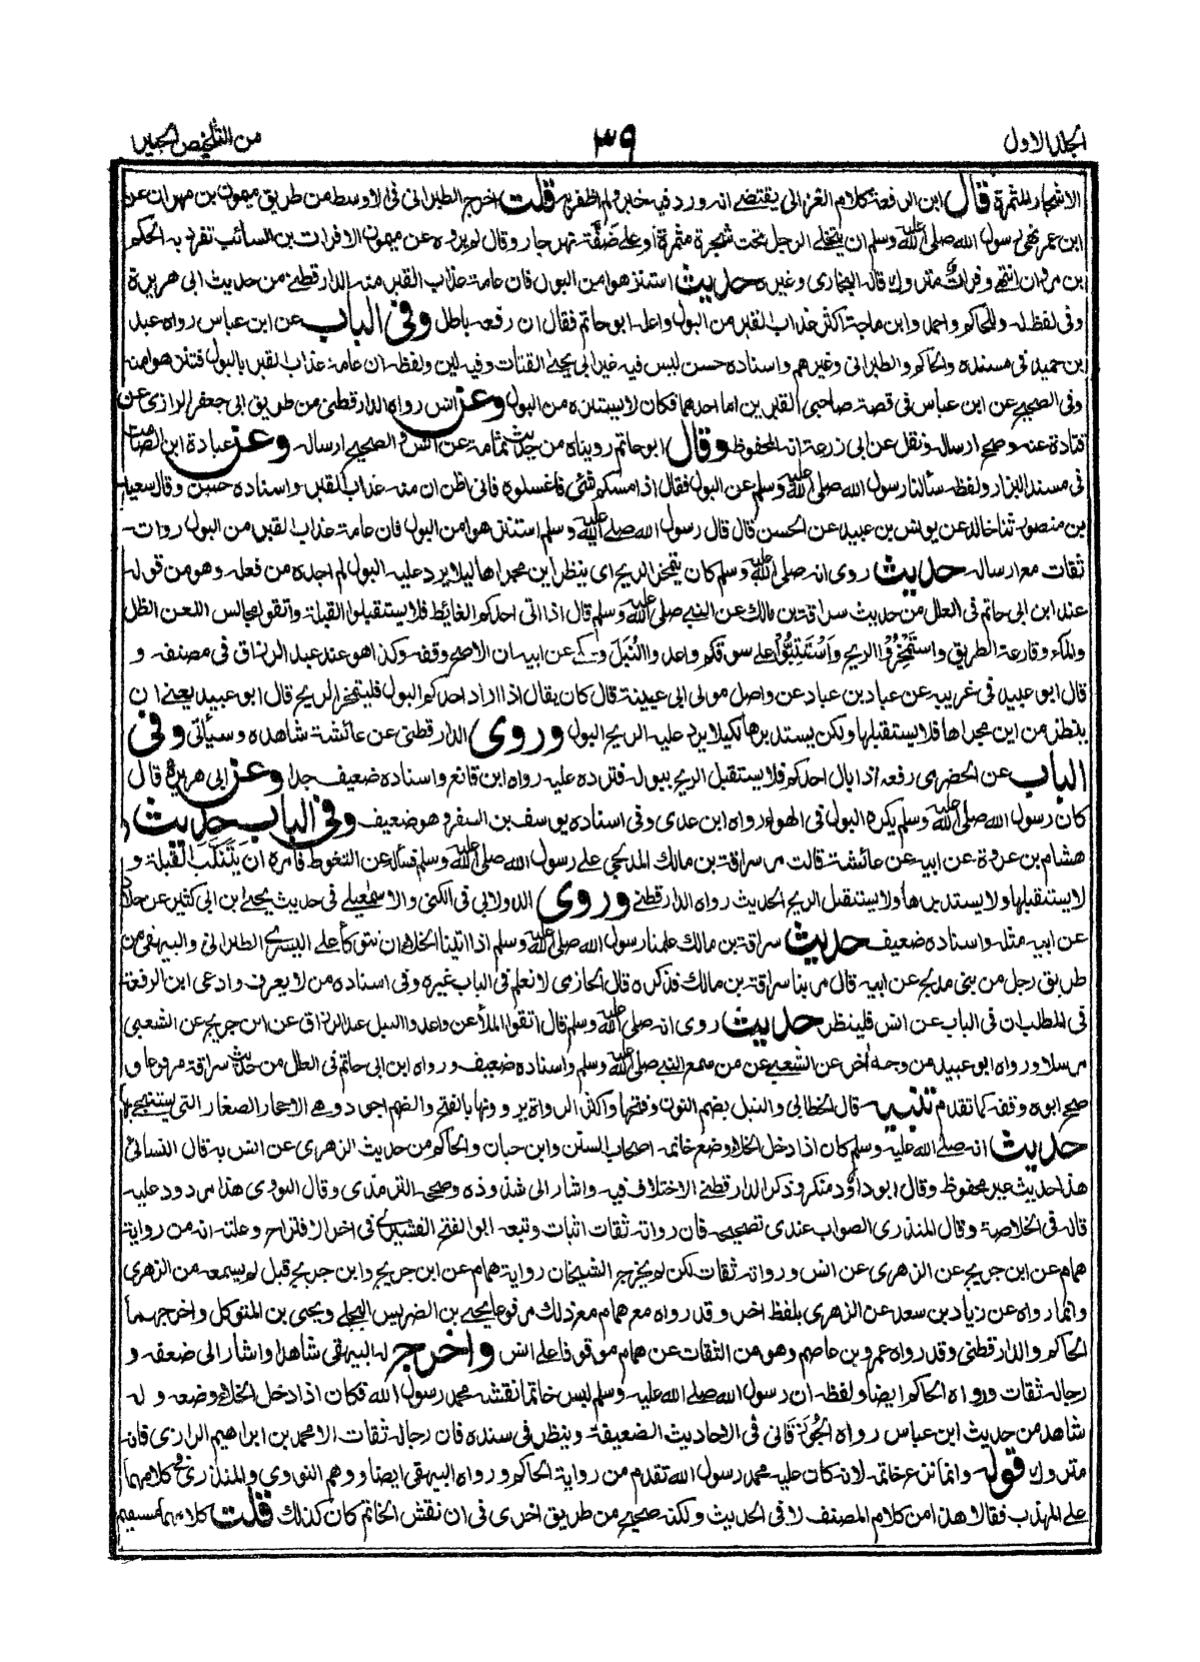 الجلد الاول
٣٩
من التلخيص الحبير
الاشجار المثمرة قال ابن الرفعة كلام الغزالى يقتضى انه ورد فيه خبر ولم اظفر به قلت اخرجه الطبرانى فى الاوسط من طريق ميمون بن مهران عن
ابن عمر نهى رسول الله صلى الله عليه وسلم ان يتخلى الرجل تحت شجرة مثمرة او على ضفة نهر جار وقال لم يروه عن ميمون الا فرات بن السائب تفرد به الحكم
بن مروان انتهى وفرات متروك قاله البخارى وغيره حديث استنزهوا من البول فان عامة عذاب القبر منه الدارقطنى من حديث ابى هريرة
وفى لفظ له وللحاكم واحمد وابن ماجة اكثر عذاب القبر من البول واعله ابو حاتم فقال ان رفعه باطل وفى الباب عن ابن عباس رواه عبد
ابن حميد فى مسنده والحاكم والطبرانى وغيرهم واسناده حسن ليس فيه غير ابى يحيى القتات وفيه لين ولفظه ان عامة عذاب القبر بالبول فتنزهوا منه
وفى الصحيح عن ابن عباس فى قصة صاحبى القبرين اما احدهما فكان لا يستنزه من البول وعن انس رواه الدارقطنى من طريق ابى جعفر الرازى عن
قتادة عنه وصحح ارساله ونقل عن ابى زرعة انه المحفوظ وقال ابو حاتم رويناه من حديث ثمامة عن انس والصحيح ارساله وعن عبادة ابن الصامت
فى مسند البزار ولفظه سألنا رسول الله صلى الله عليه وسلم عن البول فقال اذا مسكم شئ فاغسلوه فانى اظن ان منه عذاب القبر واسناده حسن وقال سعيد
بن منصور ثنا خالد عن يونس بن عبيد عن الحسن قال قال رسول الله صلى الله عليه وسلم استنزهوا من البول فان عامة عذاب القبر من البول رواته
ثقات مع ارساله حديث روى انه صلى الله عليه وسلم كان يتمخر الريح اى ينظر اين مجراها ليلا يرد عليه البول لم اجده من فعله وهو من قوله
عند ابن ابى حاتم فى العلل من حديث سراقة بن مالك عن النبى صلى الله عليه وسلم قال اذا اتى احدكم الغائط فلا يستقبلوا القبلة واتقوا مجالس اللعن الظل
والماء وقارعة الطريق واستمخروا الريح واستتبوا على سوقكم واعدوا النبل وحكى عن ابيه ان الاصح وقفه وكذا هو عند عبد الرزاق فى مصنفه و
قال ابو عبيد فى غريبه عن عباد بن عباد عن واصل مولى ابى عيينة قال كان يقال اذا اراد احدكم البول فليتمخر الريح قال ابو عبيد يعنى ان
ينظر من اين مجراها فلا يستقبلها ولكن يستدبرها لكيلا يرد عليه الريح البول وروى الدارقطنى عن عائشة شاهده وسيأتى وفى
الباب عن الحضرمى رفعه اذا بال احدكم فلا يستقبل الريح ببوله فترده عليه رواه ابن قانع واسناده ضعيف جدا وعن ابى هريرة قال
كان رسول الله صلى الله عليه وسلم يكره البول فى الهواء رواه ابن عدى وفى اسناده يوسف بن السفر وهو ضعيف وفى الباب حديث
هشام بن عروة عن ابيه عن عائشة قالت مر سراقة بن مالك المدلجى على رسول الله صلى الله عليه وسلم فسأله عن التغوط فامره ان يتنكب القبلة و
لا يستقبلها ولا يستدبرها ولا يستقبل الريح الحديث رواه الدارقطنى وروى الدولابى فى الكنى والاسمعيلى فى حديث يحيى ابن ابى كثير عن خلاد
عن ابيه مثله واسناده ضعيف حديث سراقة بن مالك علمنا رسول الله صلى الله عليه وسلم اذا اتينا الخلاء ان نتوكأ على اليسرى الطبرانى والبيهقى من
طريق رجل من بنى مدلج عن ابيه قال مر بنا سراقة بن مالك فذكره قال الحازمى لا نعلم فى الباب غيره وفى اسناده من لا يعرف وادعى ابن الرفعة
فى المطلب ان فى الباب عن انس فلينظر حديث روى انه صلى الله عليه وسلم قال اتقوا الملأعن واعدوا النبل عبد الرزاق عن ابن جريج عن الشعبى
مرسلا ورواه ابو عبيد من وجه اخر عن الشعبى عن من سمع النبى صلى الله عليه وسلم واسناده ضعيف ورواه ابن ابى حاتم فى العلل من حديث سراقة مرفوعا و
صحح ابوه وقفه كما تقدم تنبيه قال الخطابى والنبل بضم النون وفتحها واكثر الرواة يروونها بالفتح والضم اجود وهى الاحجار الصغار التى يستنجى بها
حديث انه صلى الله عليه وسلم كان اذا دخل الخلاء وضع خاتمه اصحاب السنن وابن حبان والحاكم من حديث الزهرى عن انس به قال النسائى
هذا حديث غير محفوظ وقال ابو داود منكر وذكر الدارقطنى الاختلاف فيه واشار الى شذوذه وصححه الترمذى وقال النووى هذا مردود عليه
قاله فى الخلاصة وقال المنذرى الصواب عندى تصحيحه فان رواته ثقات اثبات وتبعه ابو الفتح القشيرى فى اخر الاقتراح وعلته انه من رواية
همام عن ابن جريج عن الزهرى عن انس ورواته ثقات لكن لم يخرج الشيخان رواية همام عن ابن جريج وابن جريج قيل لم يسمعه من الزهرى
وانما رواه عن زياد بن سعد عن الزهرى بلفظ اخر وقد رواه مع همام مع ذلك مرفوعا يحيى بن الضريس البجلى ويحيى بن المتوكل واخرجهما
الحاكم والدارقطنى وقد رواه عمرو بن عاصم وهو من الثقات عن همام موقوفا على انس واخرج له البيهقى شاهدا واشار الى ضعفه و
رجاله ثقات ورواه الحاكم ايضا ولفظه ان رسول الله صلى الله عليه وسلم لبس خاتما نقشه محمد رسول الله فكان اذا دخل الخلاء وضعه وله
شاهد من حديث ابن عباس رواه الجوزقانى فى الاحاديث الضعيفة وينظر فى سنده فان رجاله ثقات الا محمد بن ابراهيم الرازى فانه
متروك قوله وانما نزع خاتمه لانه كان عليه محمد رسول الله تقدم من رواية الحاكم ورواه البيهقى ايضا ووهم النووى والمنذرى فى كلامهما
على المهذب فقالا هذا من كلام المصنف لا فى الحديث ولكنه صحيح من طريق اخرى فى ان نقش الخاتم كان كذلك قلت كلامهما مستقيم